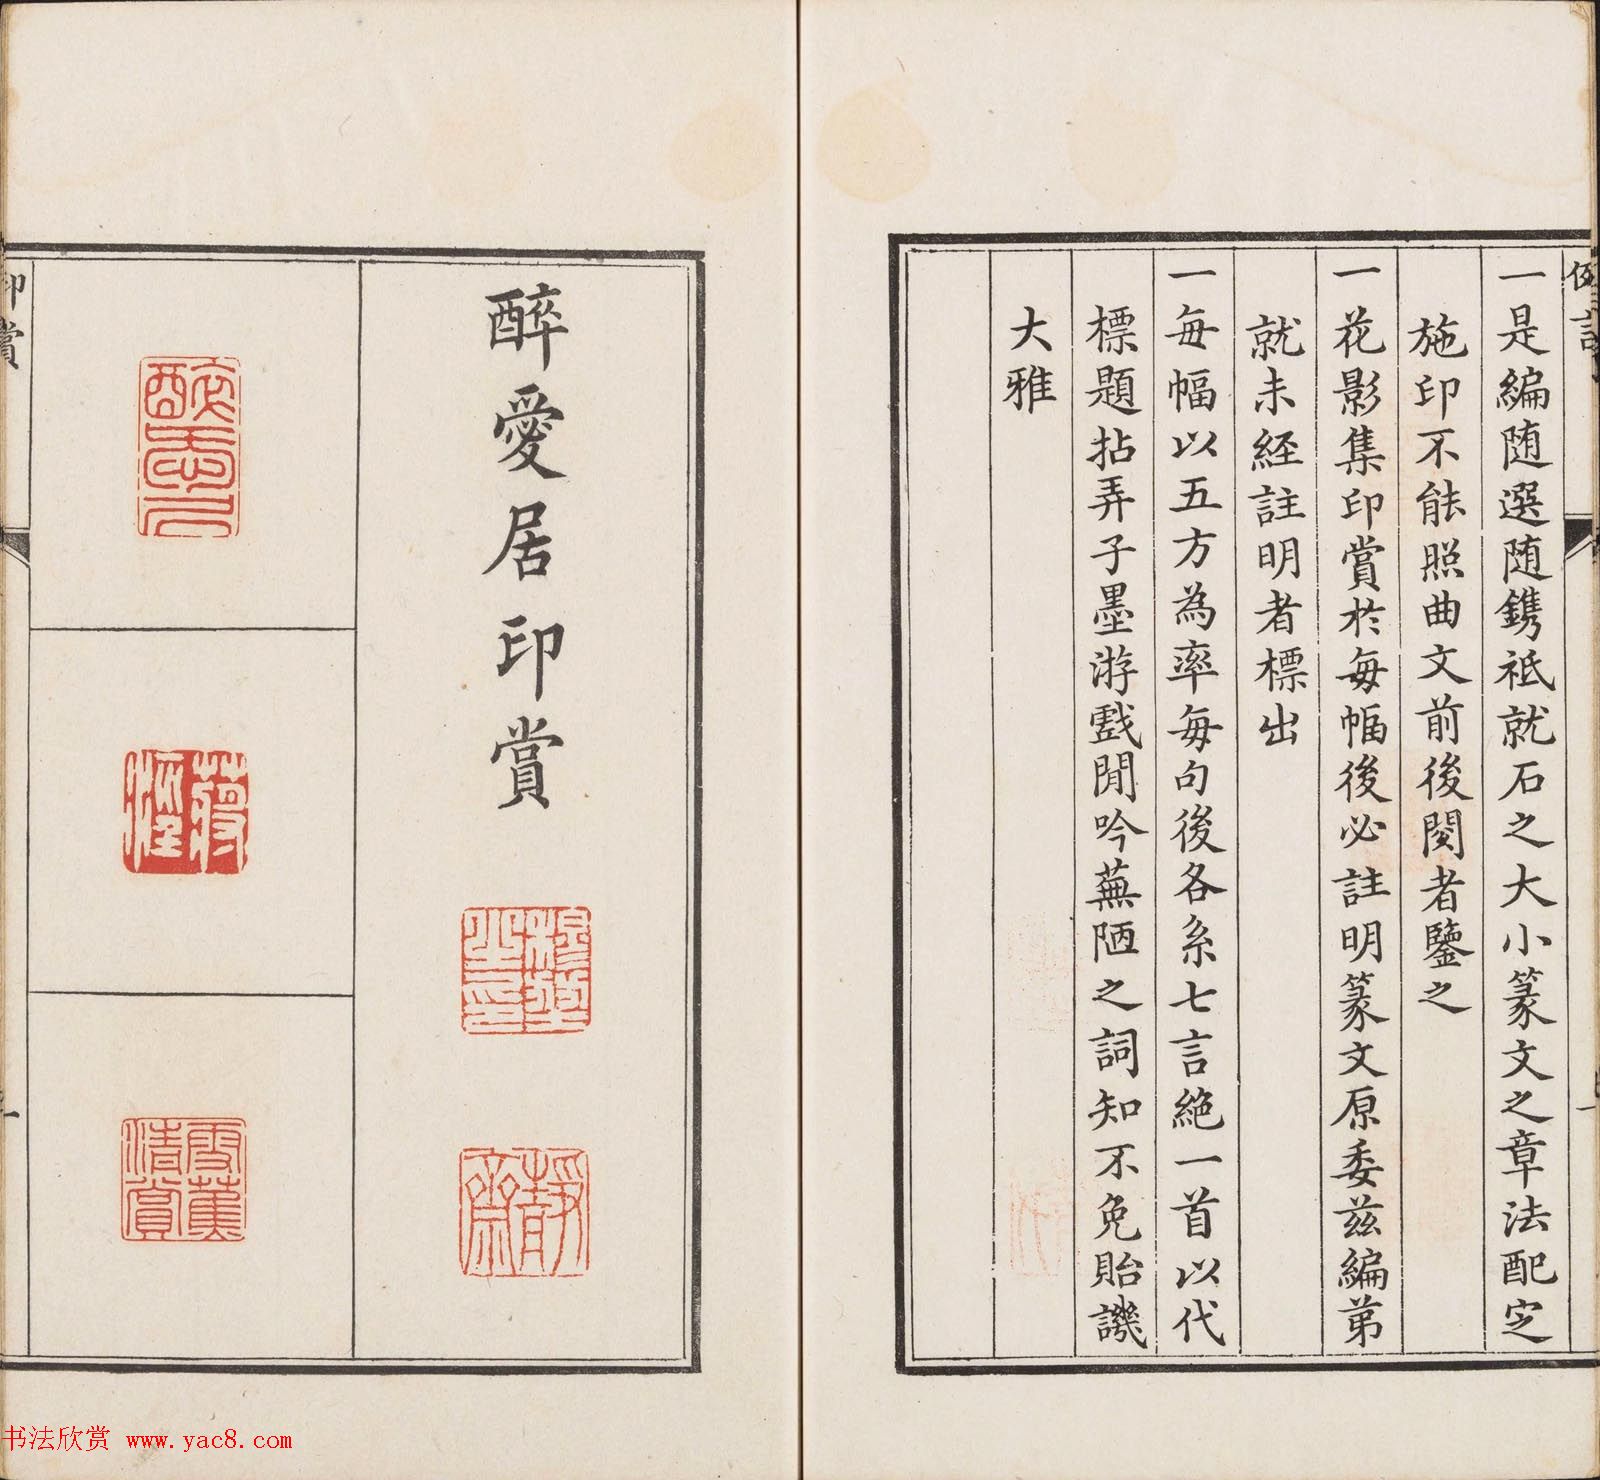 一是編随選随鐫祗就石之大小篆文之章法配定
施印不能照曲文前後閱者鑒之
一花影集印賞於每幅後必註明篆文原委兹編弟
就未經註明者標出
一每幅以五方為率每句後各系七言絶一首以代
標題拈弄子墨游戲閒吟蕪陋之詞知不免貽譏
大雅
醉愛居印賞
靜齋
雪蕉清賞
印賞
书法欣赏 www.yac8.com